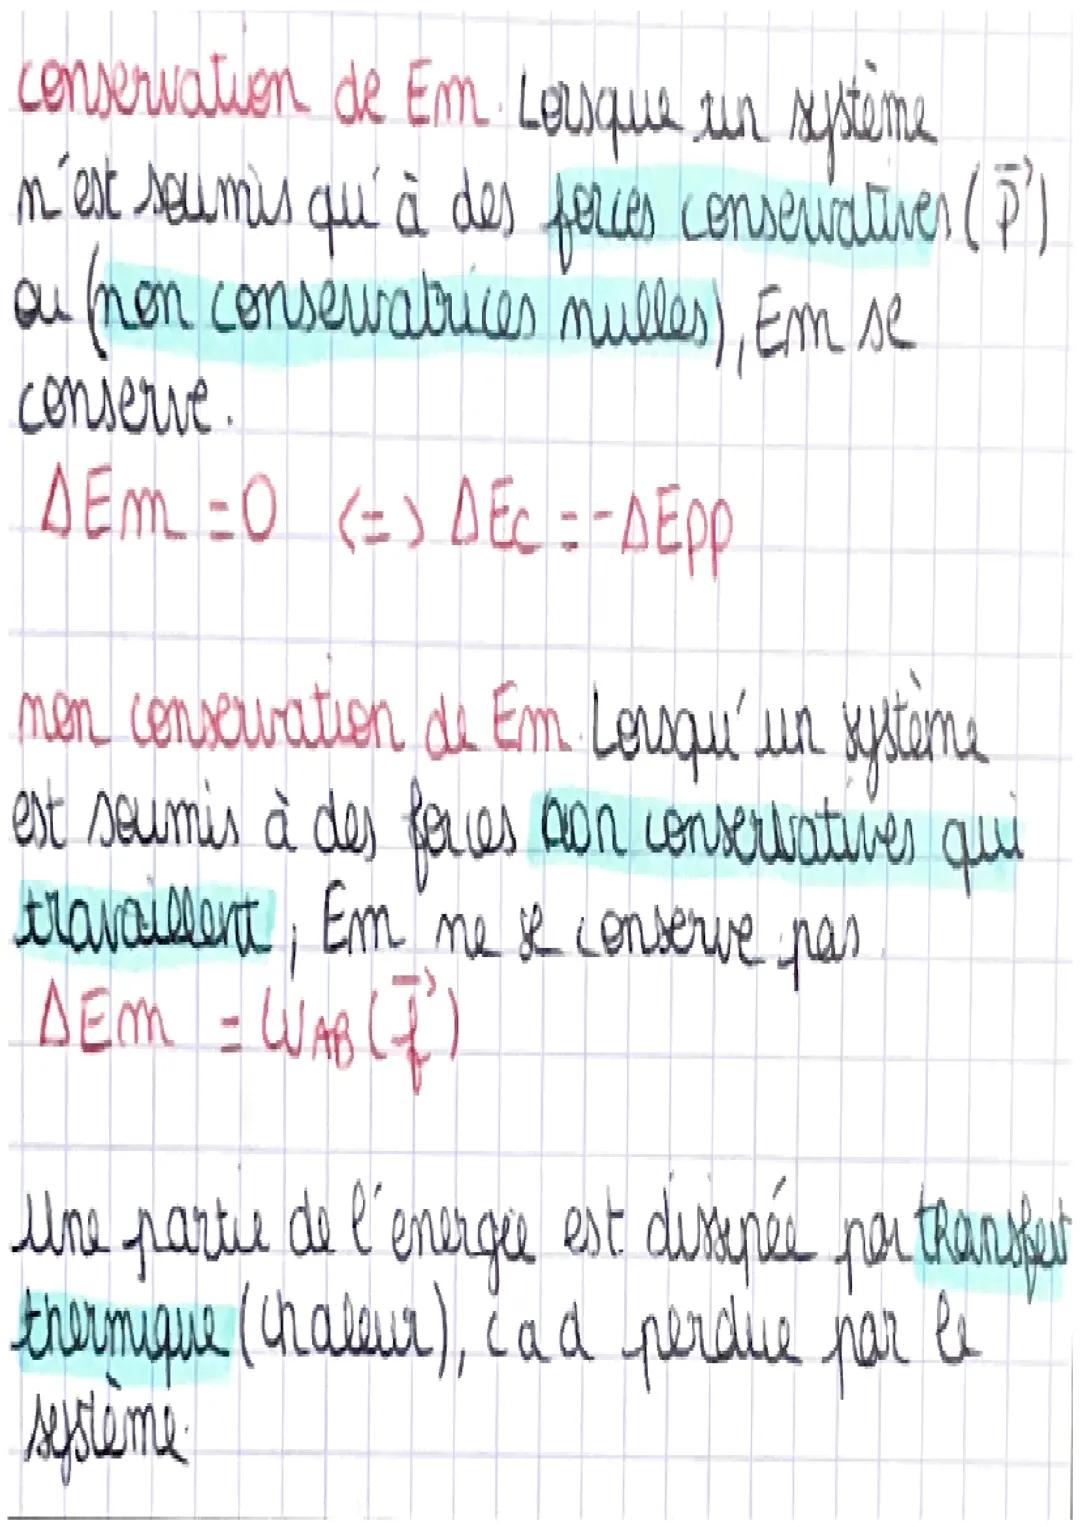 conservation de Em. Lorsque un système
n'est soumis qu'à des forces conservatives (P⃗)
ou (non conservatrices nulles), Em se
conserve.
ΔEm = 0 <=> ΔEc = -ΔEpp
non conservation de Em. Lorsqu'un système
est soumis à des forces non conservatives qui
travaillent, Em ne se conserve pas.
ΔEm = WAB (f⃗)
Une partie de l'énergie est dissipée par transfert
thermique (chaleur), càd perdue par le
système.